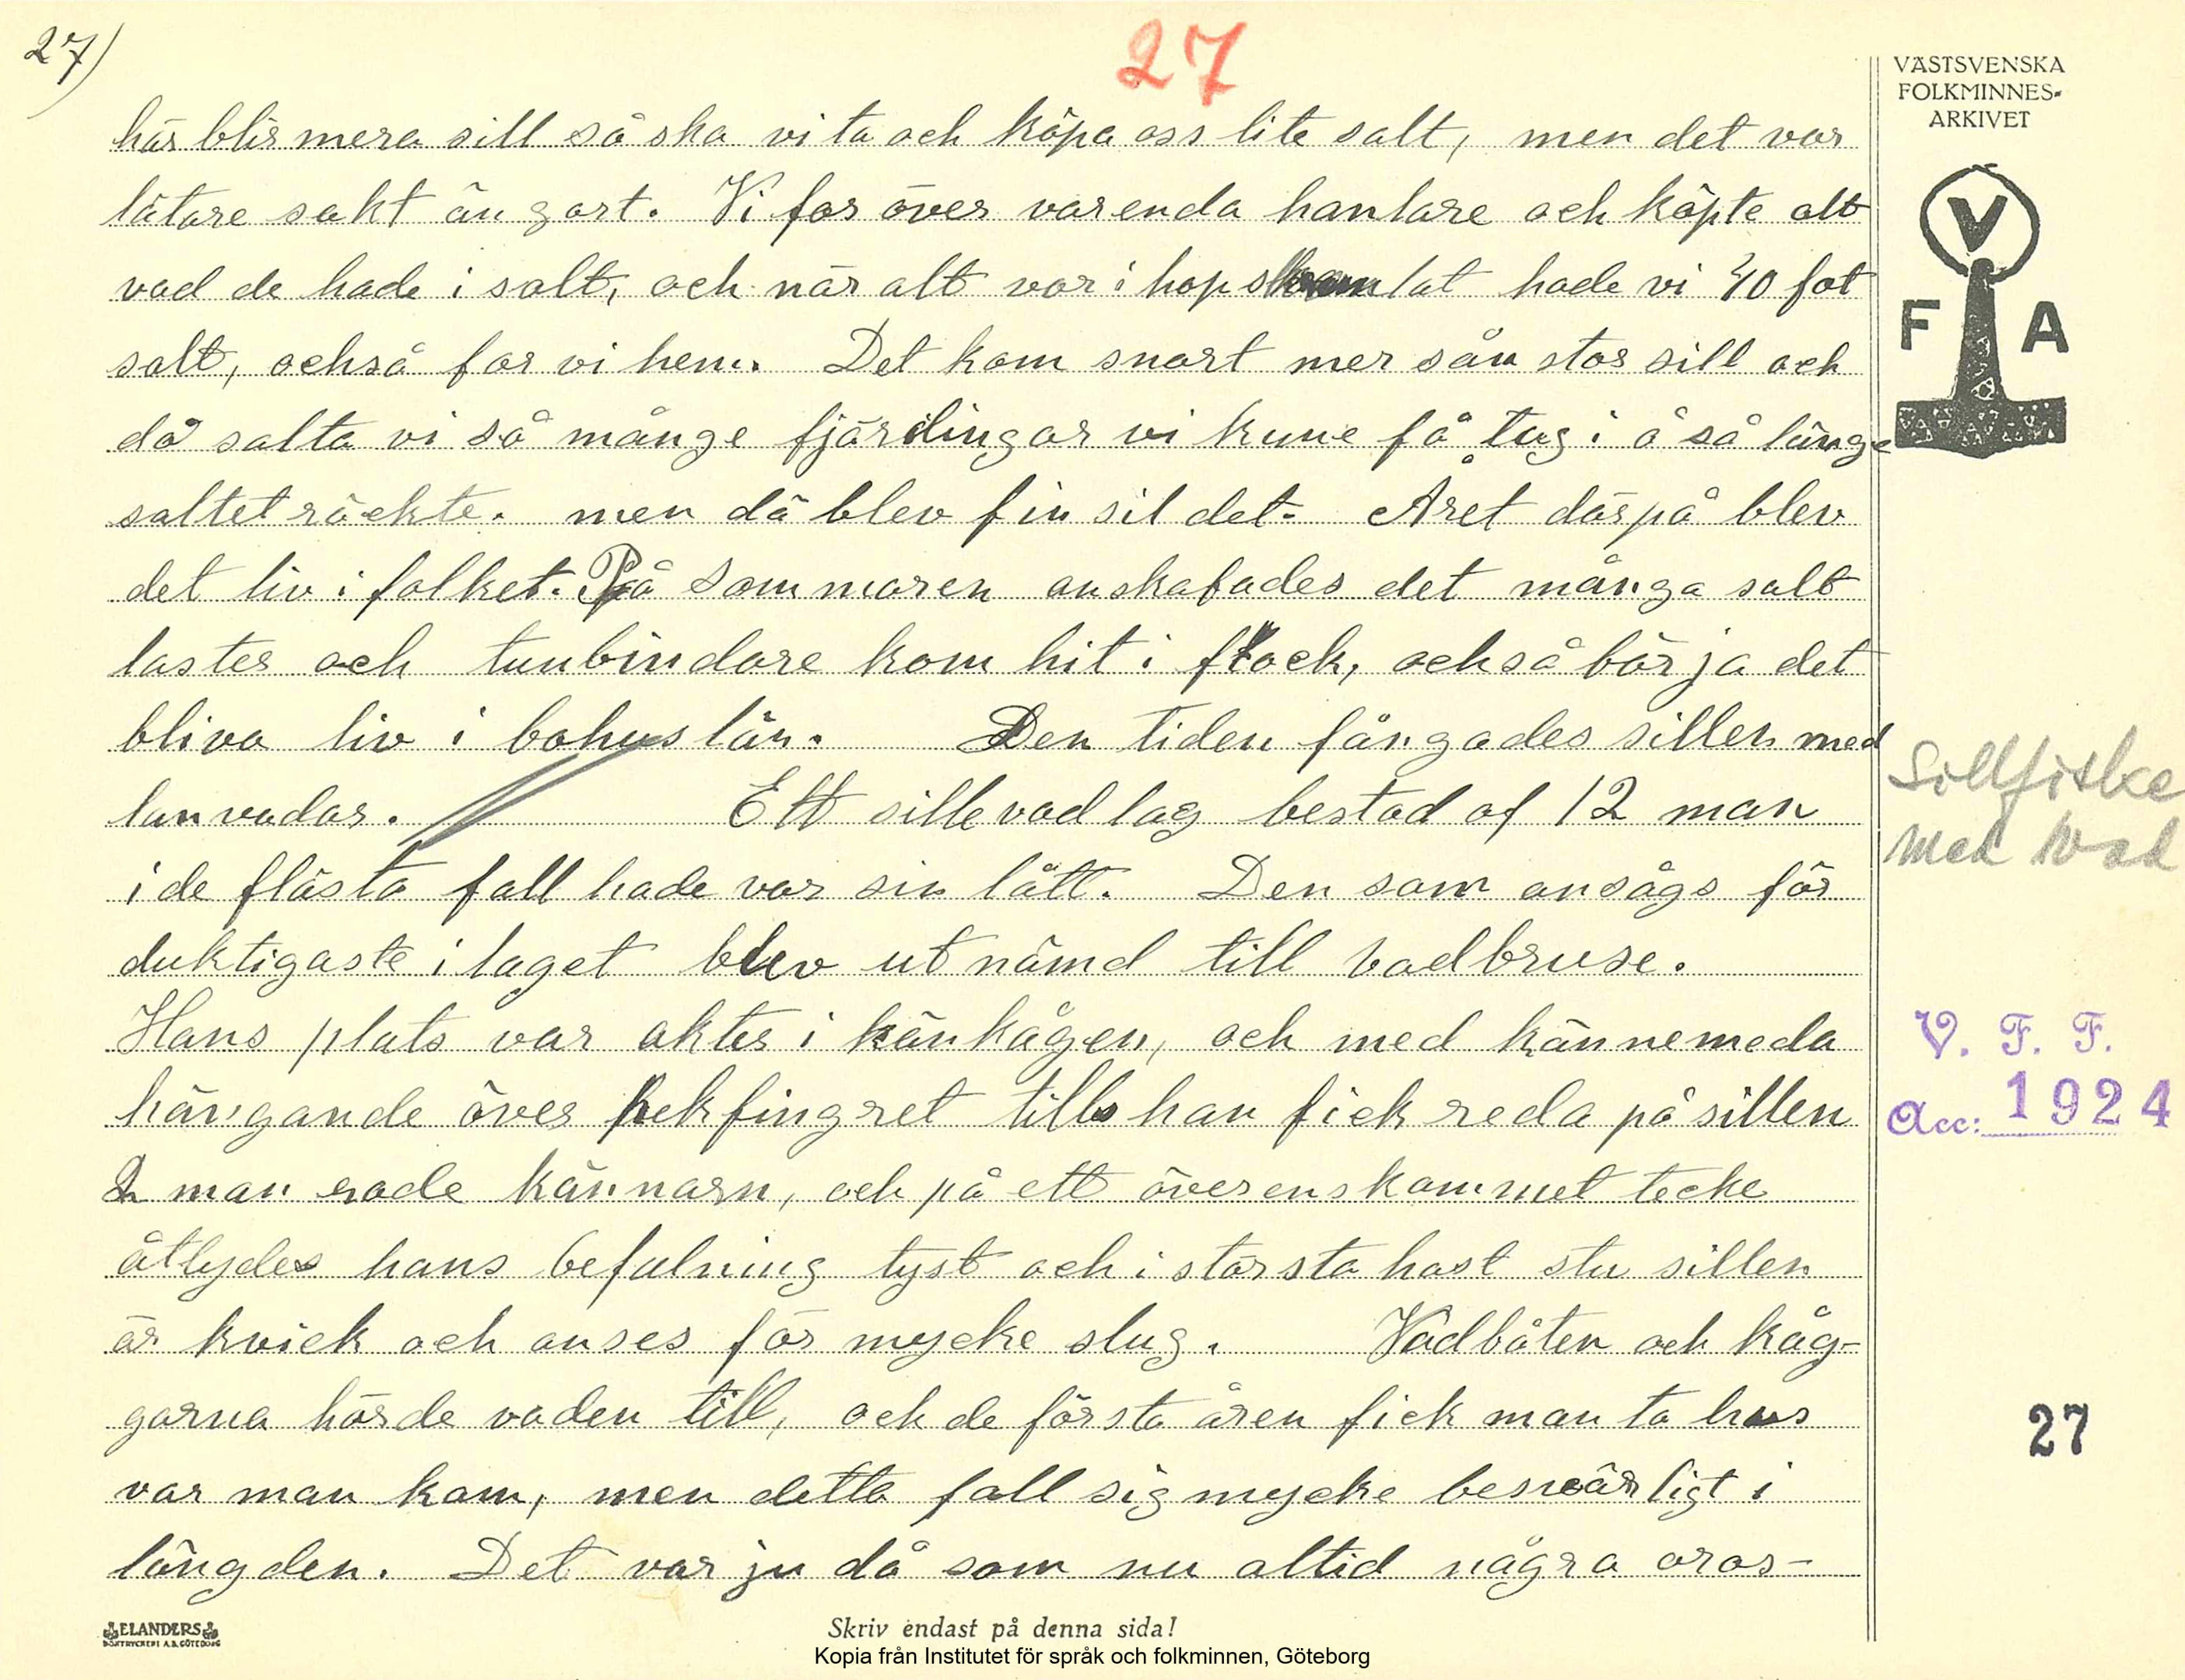 27)
27
VÄSTSVENSKA
FOLKMINNES-
ARKIVET
V
F A
här blir mera sill så ska vi ta och köpa oss lite salt, men det var
lätare sakt än gort. Vi for över varenda hanlare och köpte alt
vad de hade i salt, och när alt var ihop skramlat hade vi 40 fat
salt, ochså for vi hem. Det kom snart mer sån stor sill och
då salta vi så många fjärdingar vi kune få tag i å så länge
saltet räckte. men då blev fin sil det. Året därpå blev
det liv i folket. På sommaren anskafades det många salt
laster och tunbindare kom hit i flock, ochså börja det
bliva liv i bohuslän. Den tiden fångades sillen med
lanvadar. Ett sillevadlag bestod af 12 man
i de flästa fall hade var sin lått. Den som ansågs för
duktigaste i laget blev utnämd till vadbruse.
Hans plats var akter i känkågen, och med kännemeda
hängande över pekfingret tills han fick reda på sillen
2 man rode kännarn, och på ett överenskommet tecke
åtlydes hans befalning tyst och i största hast stu sillen
är kvick och anses för mycke slug. Vadbåten och kåg-
garna hörde vaden till, och de första åren fick man ta hus
var man kom, men detta fall sig mycke besvärligt i
längden. Det var ju då som nu altid några oros-
Sillfiske
med vad
V. F. F.
Acc: 1924
27
ELANDERS
BOKTRYCKERI A.B. GÖTEBORG
Skriv endast på denna sida!
Kopia från Institutet för språk och folkminnen, Göteborg